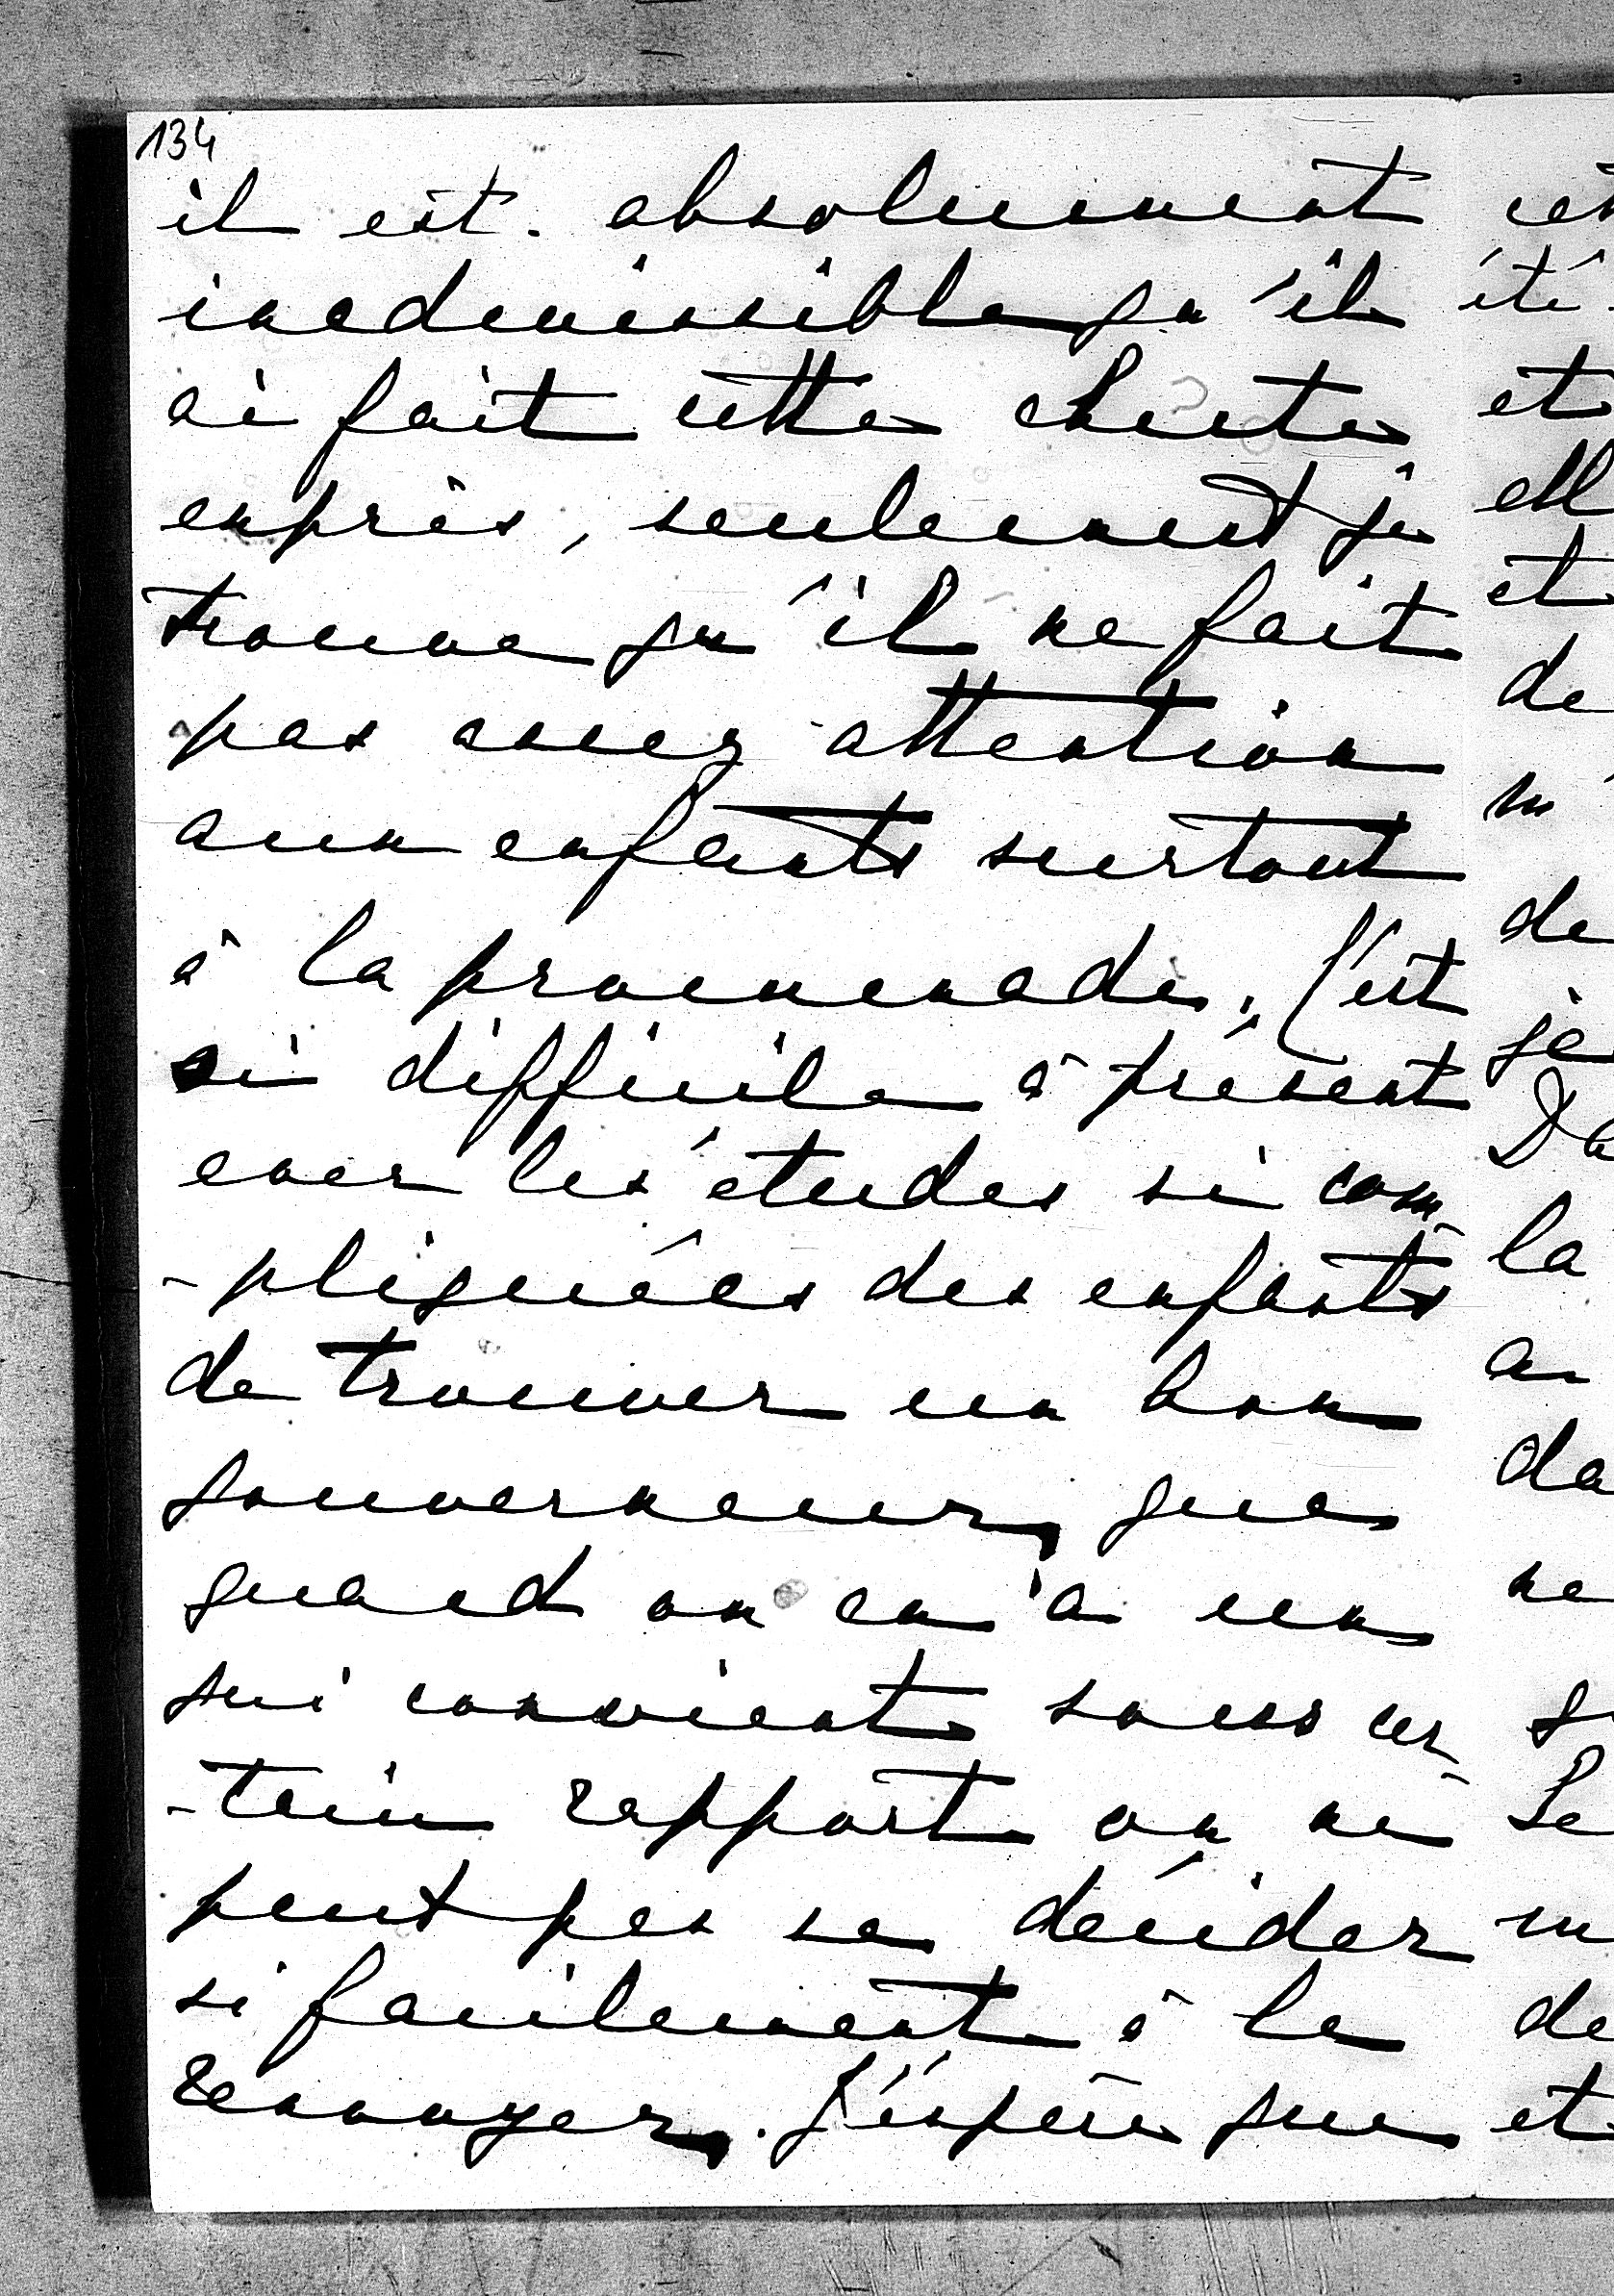 134
il est. absolument
inadmissible qu'il
ai fait cette chute
exprès, seulement je
trouve qu'il ne fait
pas assez attention
aux enfants surtout
à la promenade. C'est
si difficile à présent
avec les études si com-
-pliquées des enfants
de trouver un bon
gouverneur, que
quand on en a un
qui convient sous cer-
-tain rapport on ne
peut pas se décider
si facilement à le
renvoyer. J'espère que